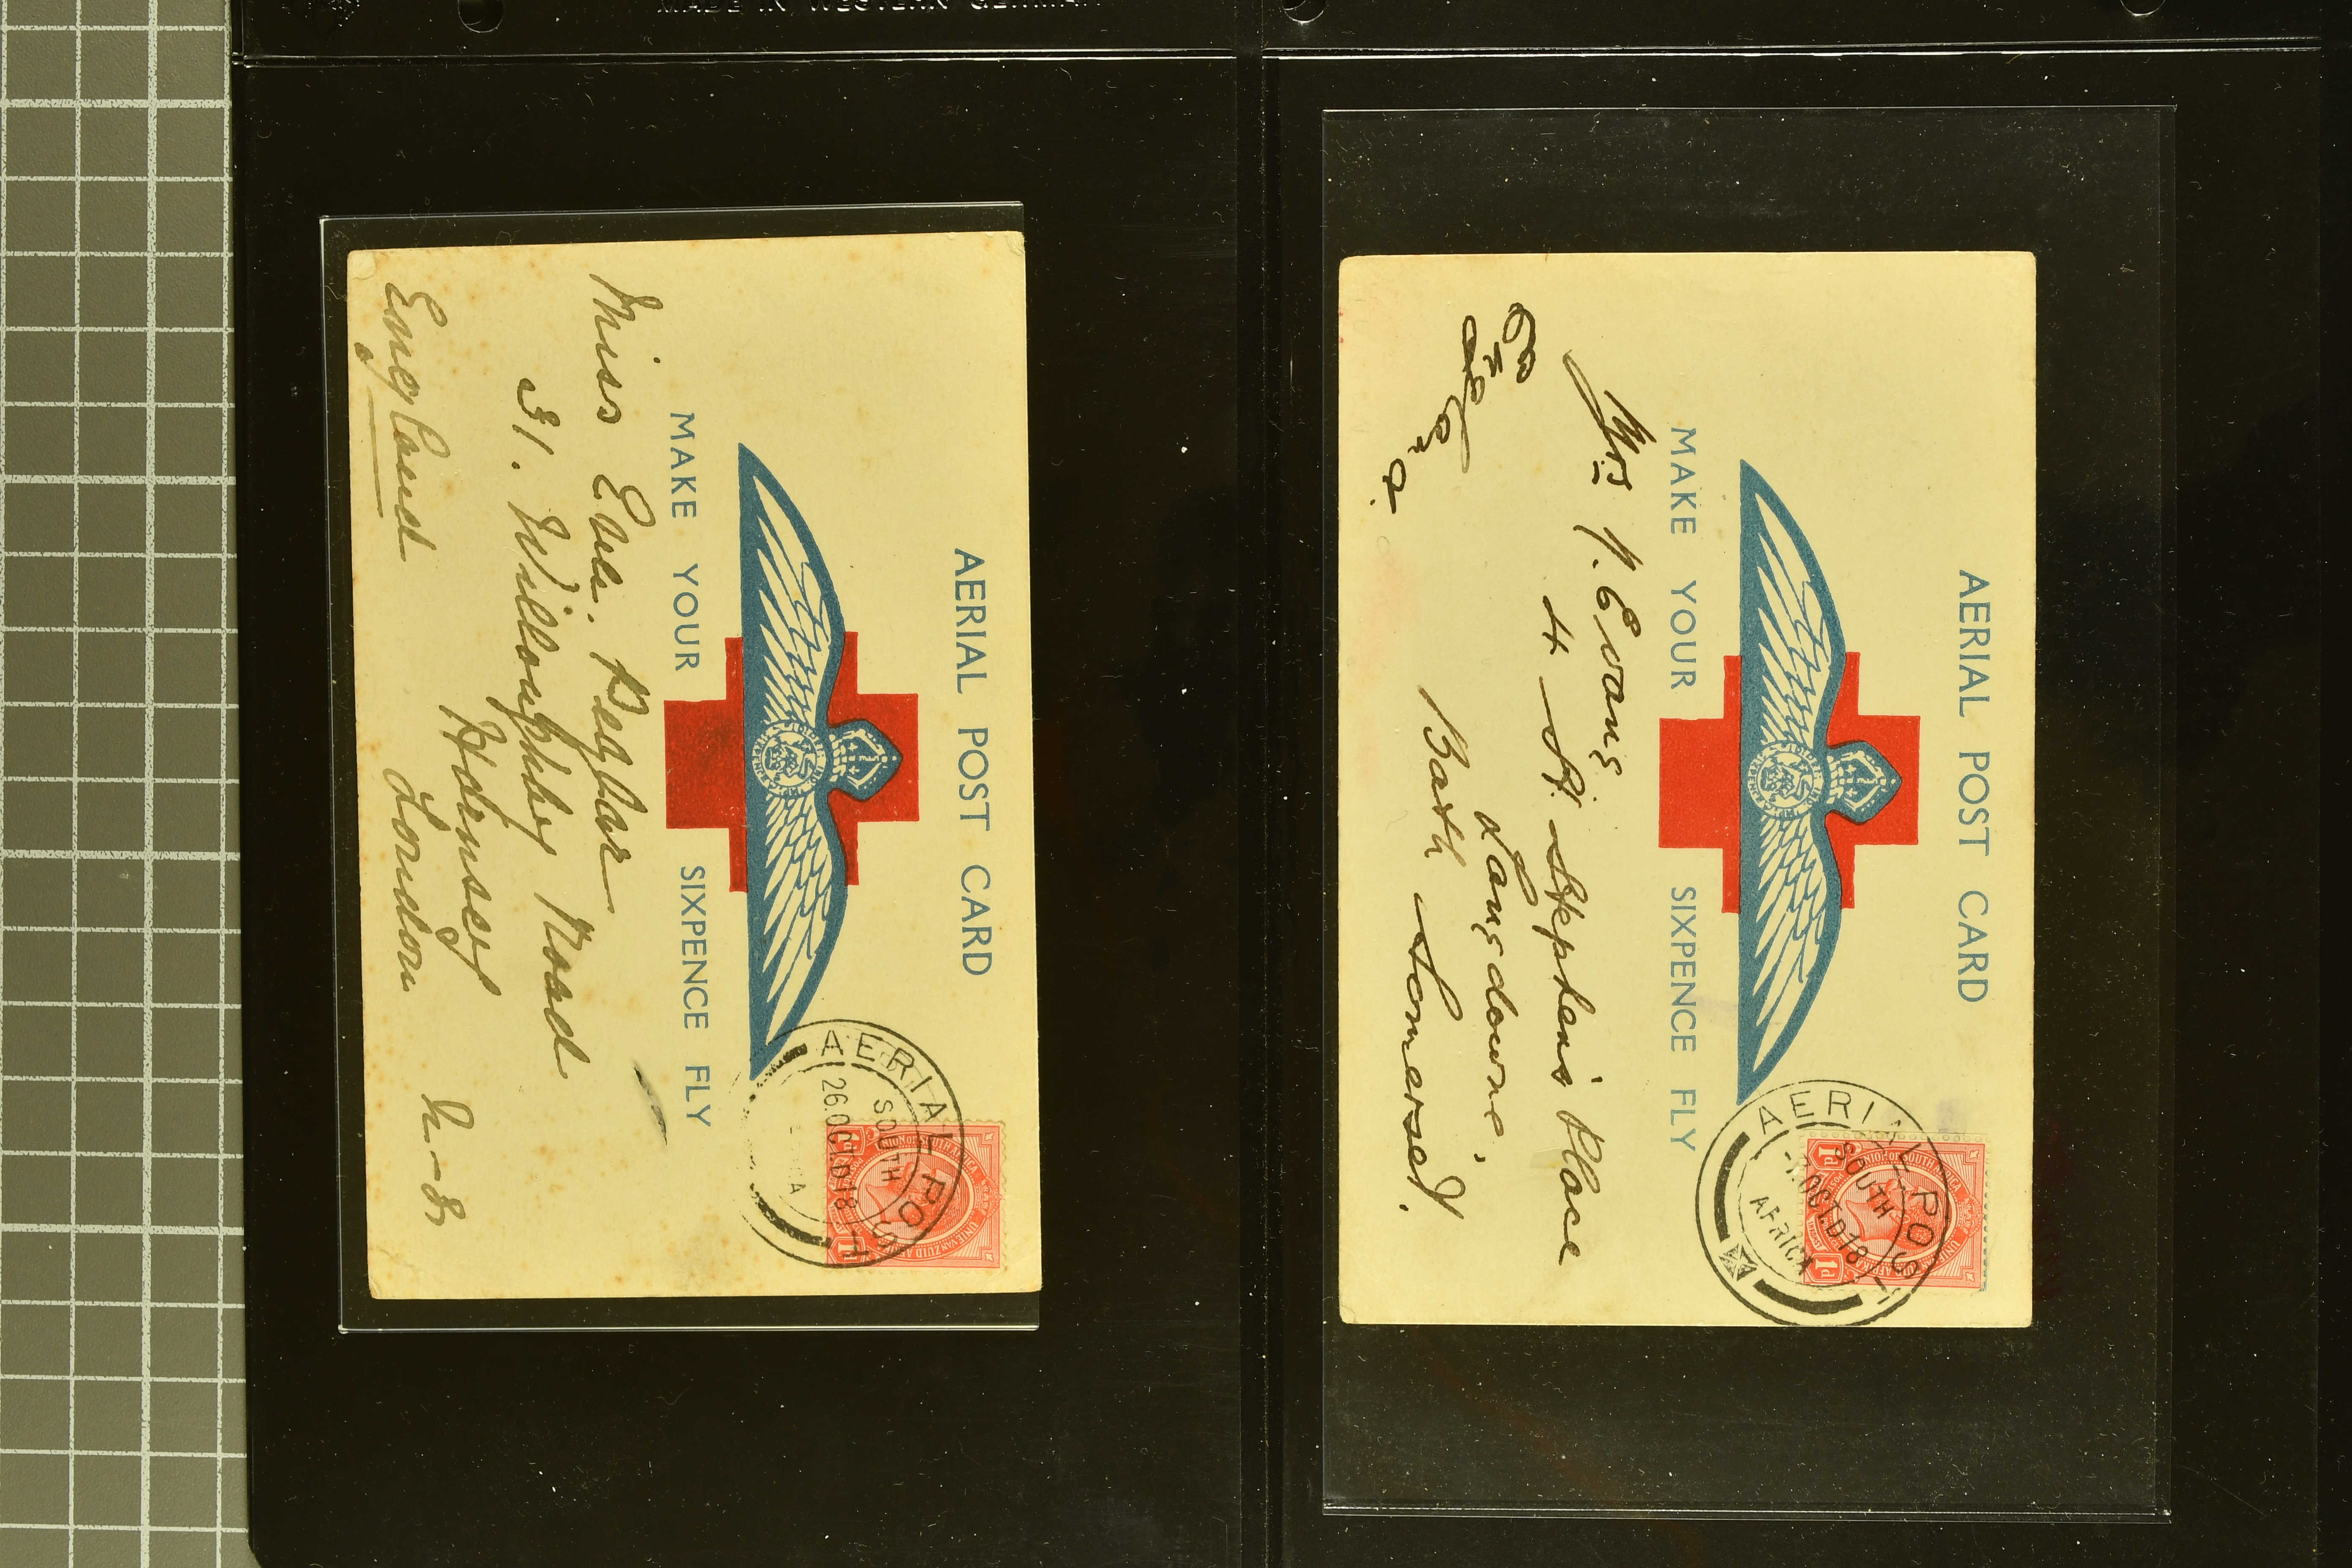 MADE IN WESTERN GERMANY
AERIAL POST CARD
MAKE YOUR SIXPENCE FLY
AERIAL POST
SOUTH
26.OCT.D.18
Miss Eva. Peglar
31. Willoughby Road
Hornsey
London N-8,
England
AERIAL POST CARD
MAKE YOUR SIXPENCE FLY
AERIAL POST
SOUTH
OCT.D18
AFRICA
1d 1d
Mrs Evans
4 St. Stephen's Place
Lansdowne,
Bath Somerset.